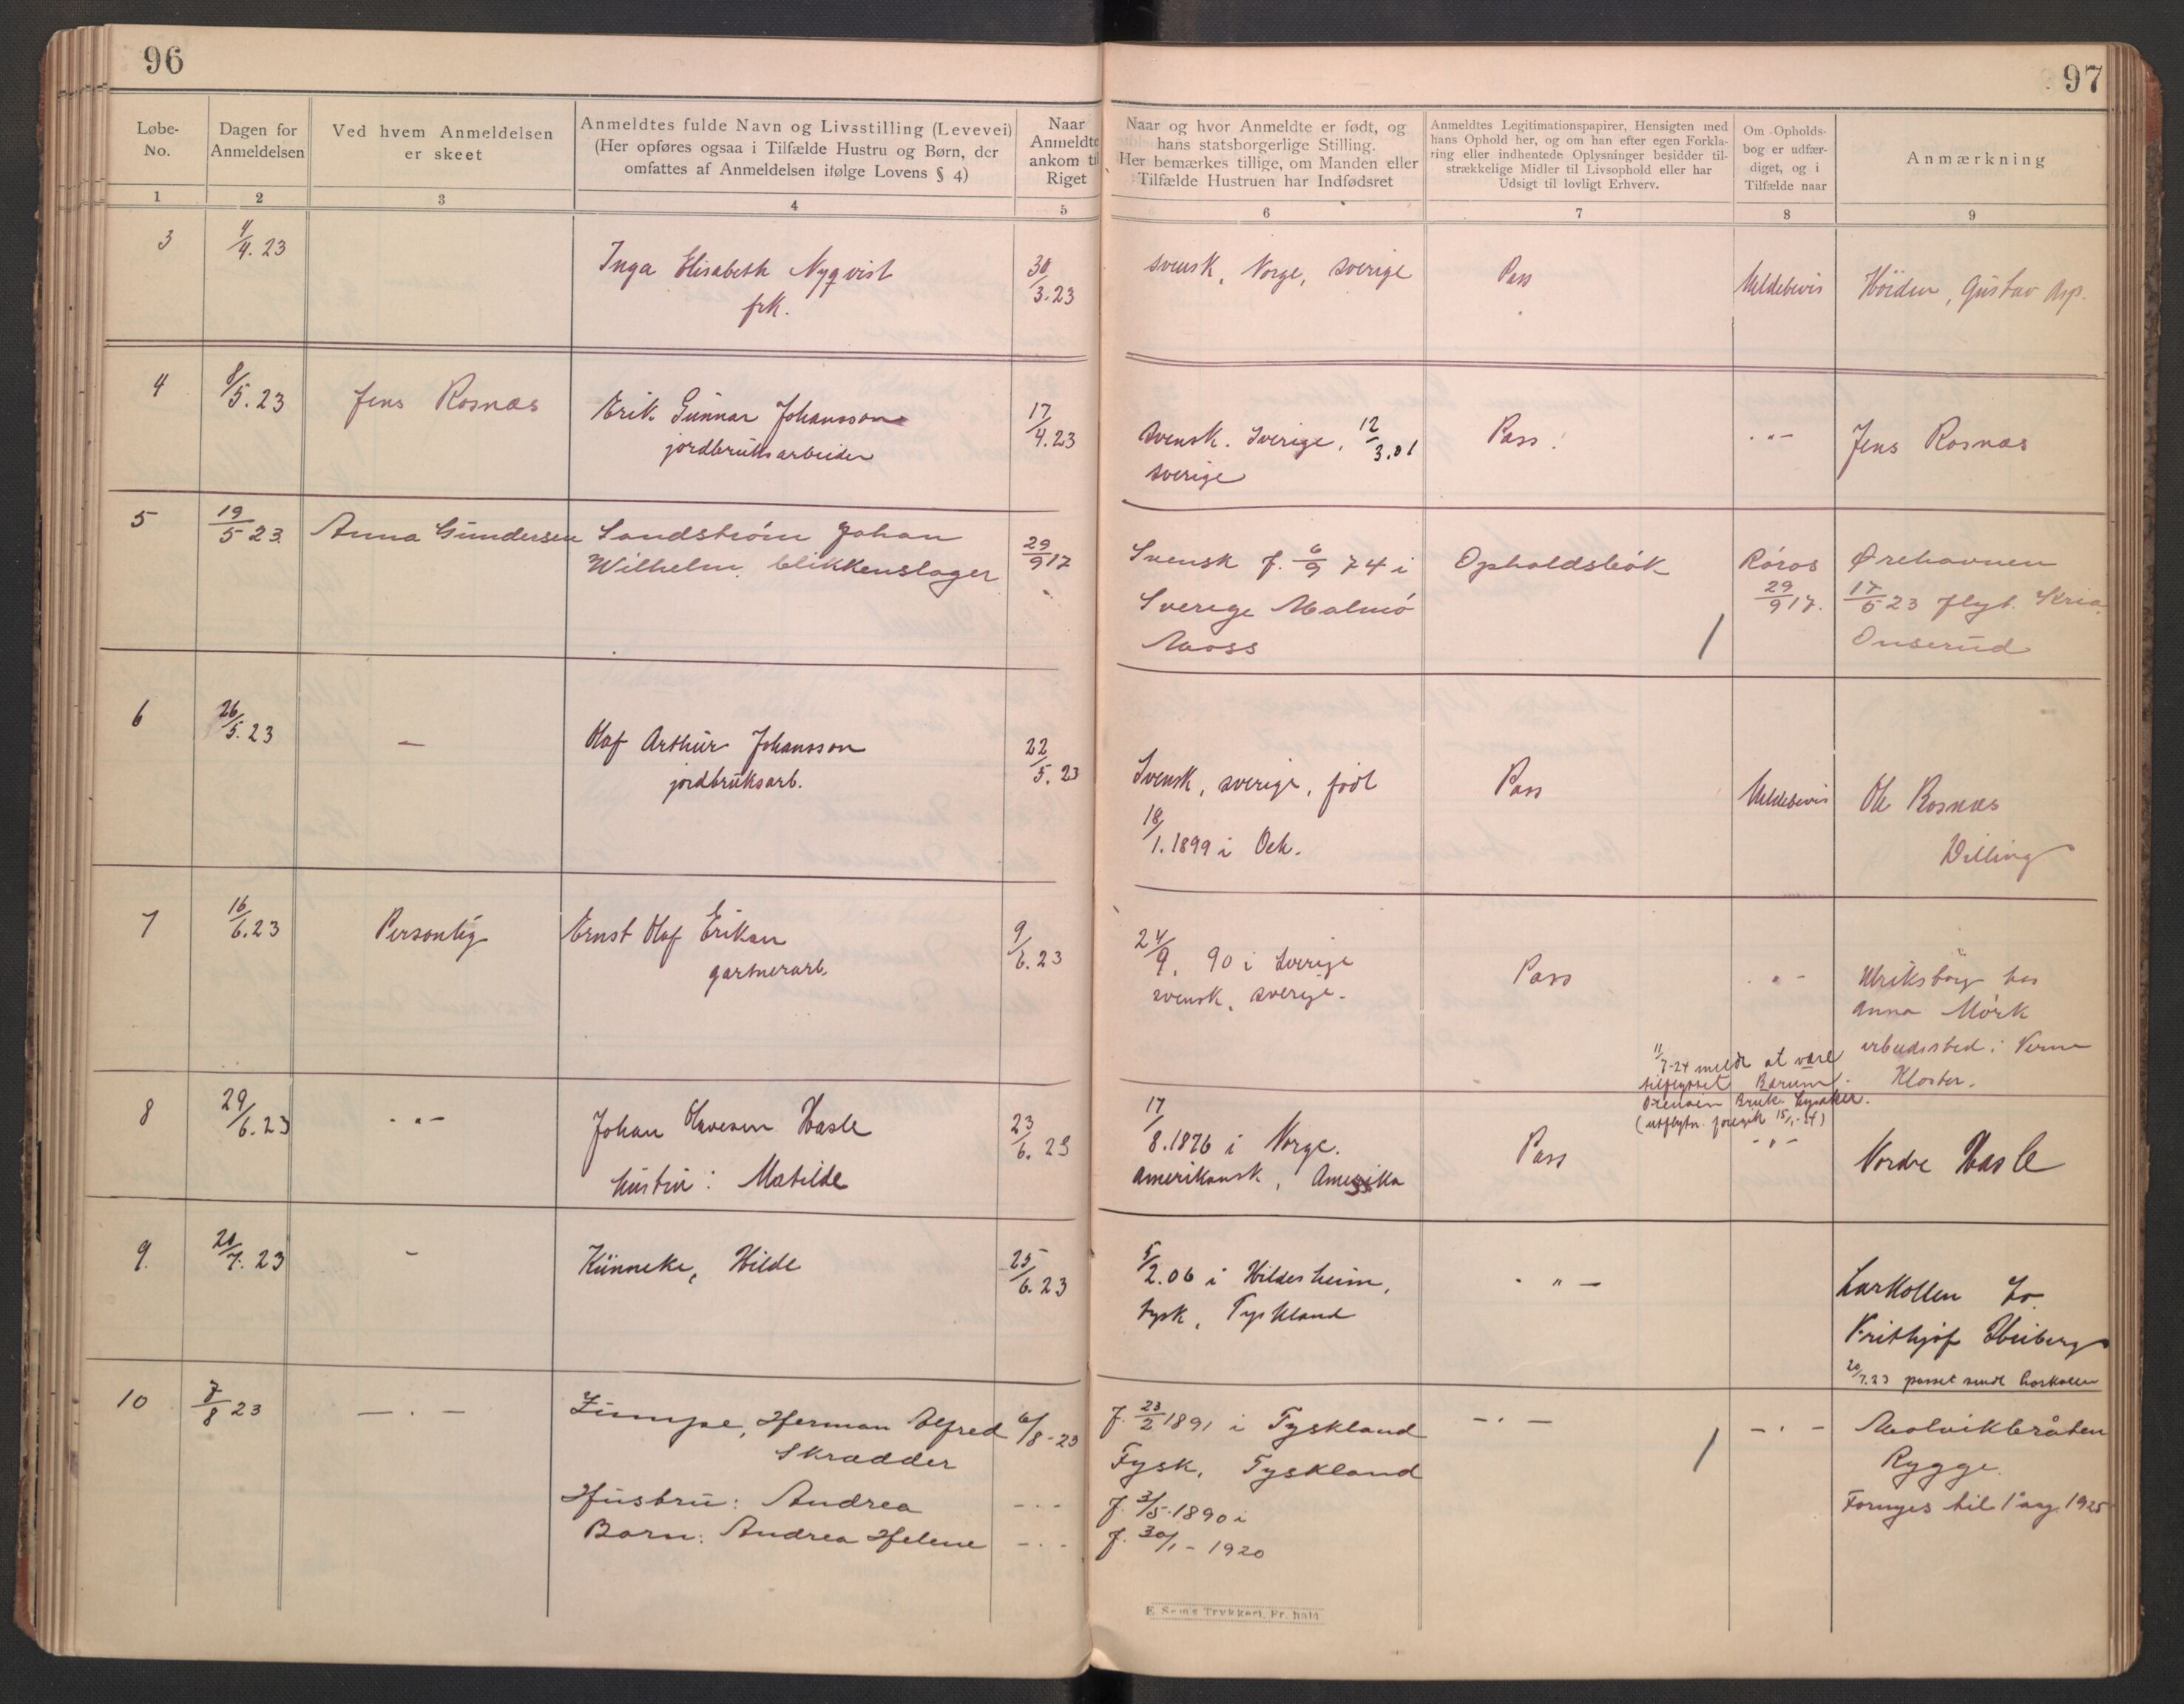 96
97
Løbe-No.
Dagen for Anmeldelsen
Ved hvem Anmeldelsen er skeet
Anmeldtes fulde Navn og Livsstilling (Levevei)
(Her opføres ogsaa i Tilfælde Hustru og Børn, der
omfattes af Anmeldelsen ifølge Lovens § 4)
Naar Anmeldte ankom til Riget
Naar og hvor Anmeldte er født, og
hans statsborgerlige Stilling.
Her bemærkes tillige, om Manden eller
Tilfælde Hustruen har Indfødsret
Anmeldtes Legitimationspapirer, Hensigten med
hans Ophold her, og om han efter egen Forkla-
ring eller indhentede Oplysninger besidder til-
strækkelige Midler til Livsophold eller har
Udsigt til lovligt Erhverv.
Om Opholds-
bog er udfær-
diget, og i
Tilfælde naar
Anmærkning
1 2 3 4 5 6 7 8 9
3 4/4.23 Inga Elisabeth Nyqvist 30/3.23 svensk, Norge, sverige Pass Meldebevis Höiden, Gustav Asp.
frk.
4 8/5.23 Jens Rosnæs Erik Gunnar Johansson 17/4.23 svensk. Sverige, 12/3.01 Pass. -"- Jens Rosnæs
jordbruksarbeider sverige
5 19/5 23 Anna Gundersen Sandström Johan 29/9 17 Svensk f. 6/9 74 i Opholdsbok Röros Ørehavnen
Wilhelm, blikkenslager Sverige Malmö 29/9 17. 17/5 23 flyt. Kria.
Moss Onserud
6 26/5.23 — Olaf Arthur Johansson 22/5.23 Svensk, sverige, född Pass Meldebevis Ole Rosnæs
jordbruksarb. 18/1.1899 i Och. Dilling
7 16/6.23 Personlig Ernst Olaf Eriksen 9/6.23 24/9. 90 i Sverige Pass "- Ulriksborg hos
gartnerarb. svensk, sverige. Anna Mörk
arbeidssted i Verne
Kloster.
11/7-24 meldt at være
tilflyttet Bærum.
Bruk. Lysaker.
(utflytn. foregik 15/1-24)
8 29/6.23 -"- Johan Olavesen Hasle 23/6.23 17/8.1876 i Norge. Pass -"- Nordre Hasle
hustru: Matilde amerikansk, Amerika
9. 20/7.23 - Künneke, Hilde 25/6.23 5/2.06 i Hildesheim, -"- Larkollen
tysk, Tyskland Frithjof Heiberg
20/7.23 passet sendt Larkollen
10 7/8 23 —.— Zumpe, Herman Alfred 6/8-23 f. 23/2 1891 i Tyskland -.- -.- Molvikbråten
Skrædder Tysk, Tyskland Rygge.
Hustru: Andrea -.- f. 3/5-1890 i Fornyes til 1 aug. 1925
Barn: Andrea Helene -.- f. 30/1-1920
E. Sem's Trykkeri, Fr.hald